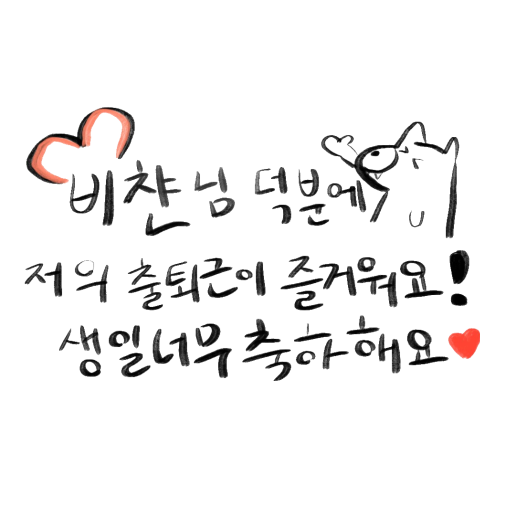 비챤님 덕분에
저의 출퇴근이 즐거워요!
생일너무축하해요